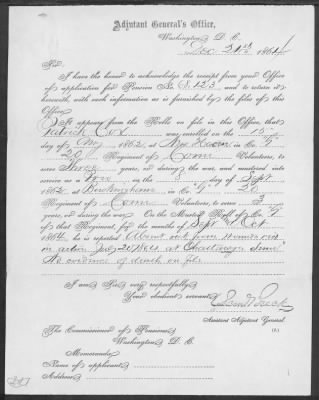 Adjutant General's Office,
Washington, D. C.
Dec. 21st 1864
Sir:
I have the honor to acknowledge the receipt from your Office
of application for Pension No. 63.123 and to return it
herewith, with such information as is furnished by the files of this
Office.
It appears from the Rolls on file in this Office, that
Patrick Cox was enrolled on the 15
day of Aug, 1862 at New Haven in Co. "G"
20 Regiment of Conn Volunteers, to
serve three years, or during the war, and mustered into
service as a Priv on the day of Sept
1862 at Buckingham in Co. "G" 20
Regiment of Conn Volunteers, to serve 3
years, or during the war. On the Muster Roll of Co. "G"
of that Regiment, for the months of Sept & Oct
1864, he is reported Absent
in action July 20/1864 at
No evidence of death on file
I am, Sir, very respectfully,
Your obedient servant,
Breck
Assistant Adjutant General.
The Commissioner of Pensions,
Washington, D. C.
Memoranda:
Name of applicant,
Address,